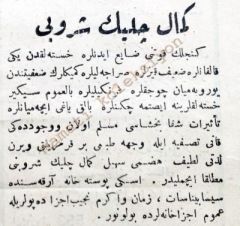 كمال چليك شروبى
كنجلك قوتنى ضايع ايدنلره خسته لقدن يكى
قالقانلره ضعيف قيزلره صراجه ليلره كميكلرك ضعفيتندن
يورويه ميان چوجقلره وبالعموم سيكير
خسته لقلرينه ايصتمه چكنلره بالق ياغى ايچه ميانلره
تأثيرات شفا بخشاسى مسلم اولان ووجوددكى
قانى تصفيه ايله وجهه طبيعى بر قرمزيلق ويرن
لذتى لطيف هضمى سهل كمال چليك شروبنى
مطلقا ايچمليدر. اسكى پوسته خانه آرقه سنده
سيماپيناسات، زمان واكرم نجيب اجزا دپولريله
عموم اجزاخانه لرده بولونور.